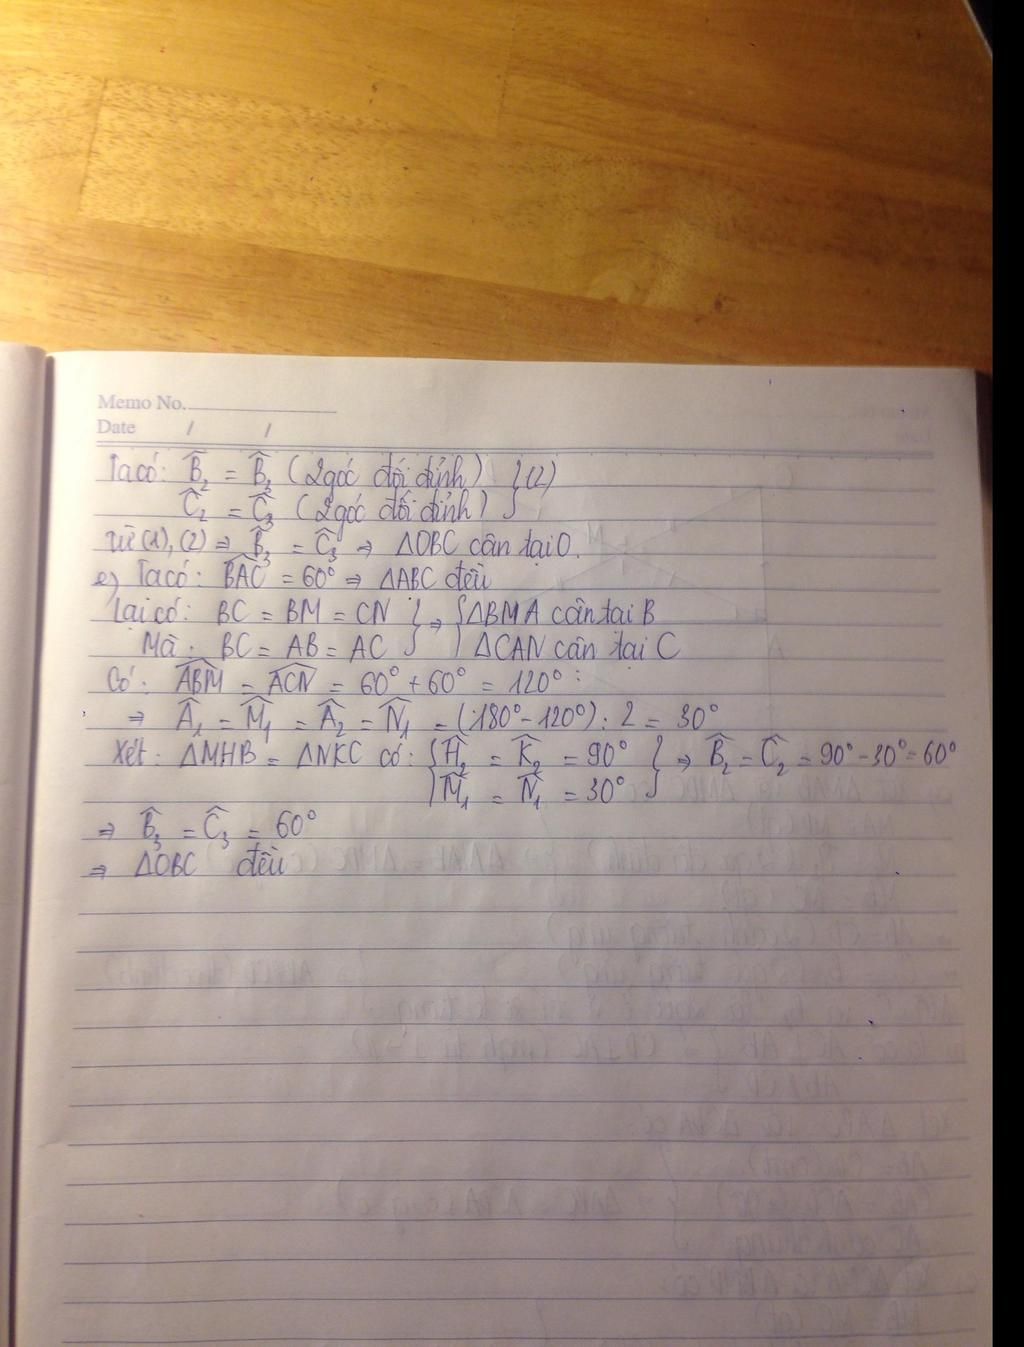 Memo No.
Date / /
Ta có: B̂₂ = B̂₃ (2 góc đối đỉnh) } (2)
Ĉ₂ = Ĉ₃ (2 góc đối đỉnh) }
Từ (1), (2) ⇒ B̂₃ = Ĉ₃ ⇒ ΔOBC cân tại O.
e) Ta có: BAC = 60° ⇒ ΔABC đều
Lại có: BC = BM = CN } ⇒ { ΔBMA cân tại B
Mà: BC = AB = AC } { ΔCAN cân tại C
Có: ABM = ACN = 60° + 60° = 120°
⇒ Â₁ = M̂₁ = Â₂ = N̂₁ = (180° - 120°) : 2 = 30°
Xét: ΔMHB = ΔNKC có: { Ĥ₂ = K̂₂ = 90° } ⇒ B̂₂ = Ĉ₂ = 90° - 30° = 60°
{ M̂₁ = N̂₁ = 30° }
⇒ B̂₃ = Ĉ₃ = 60°
⇒ ΔOBC đều